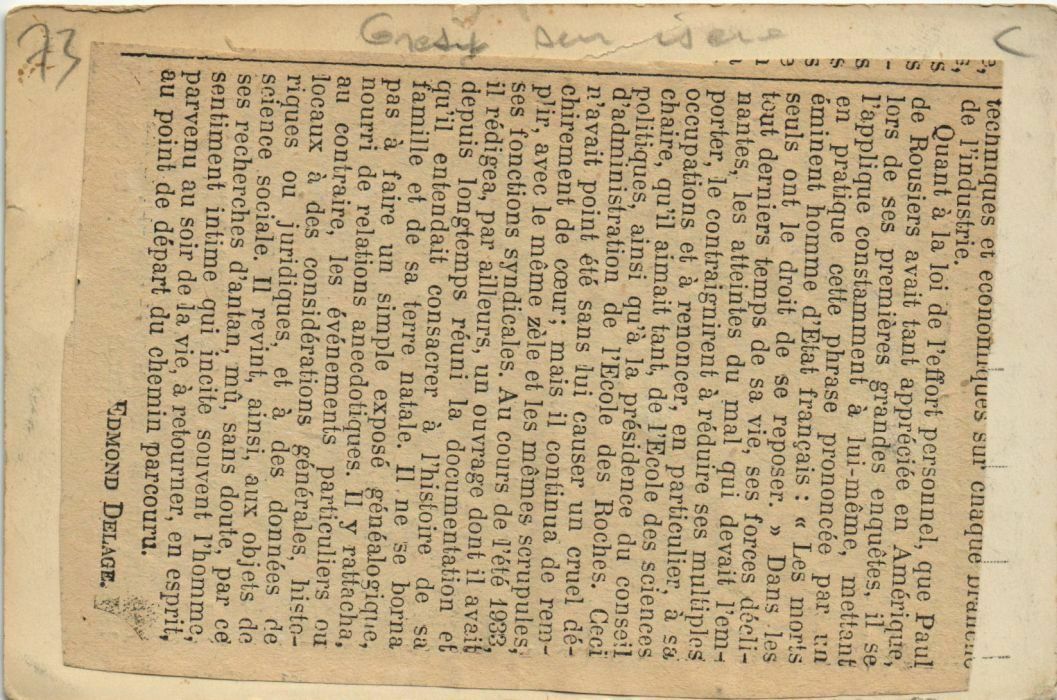 73
Gresy sur isere
techniques et economiques sur chaque branche
de l'industrie.
Quant à la loi de l'effort personnel, que Paul
de Rousiers avait tant appréciée en Amérique,
lors de ses premières grandes enquêtes, il se
l'applique constamment à lui-même, mettant
en pratique cette phrase prononcée par un
éminent homme d'Etat français : « Les morts
seuls ont le droit de se reposer. » Dans les
tout derniers temps de sa vie, ses forces décli-
nantes, les atteintes du mal qui devait l'em-
porter, le contraignirent à réduire ses multiples
occupations et à renoncer, en particulier, à sa
chaire, qu'il aimait tant, de l'Ecole des sciences
politiques, ainsi qu'à la présidence du conseil
d'administration de l'Ecole des Roches. Ceci
n'avait point été sans lui causer un cruel dé-
chirement de cœur; mais il continua de rem-
plir, avec le même zèle et les mêmes scrupules,
ses fonctions syndicales. Au cours de l'été 1933,
il rédigea, par ailleurs, un ouvrage dont il avait
depuis longtemps réuni la documentation et
qu'il entendait consacrer à l'histoire de sa
famille et de sa terre natale. Il ne se borna
pas à faire un simple exposé généalogique,
nourri de relations anecdotiques. Il y rattacha,
au contraire, les événements particuliers ou
locaux à des considérations générales, histo-
riques ou juridiques, et à des données de
science sociale. Il revint, ainsi, aux objets de
ses recherches d'antan, mû, sans doute, par ce
sentiment intime qui incite souvent l'homme,
parvenu au soir de la vie, à retourner, en esprit,
au point de départ du chemin parcouru.
EDMOND DELAGE.